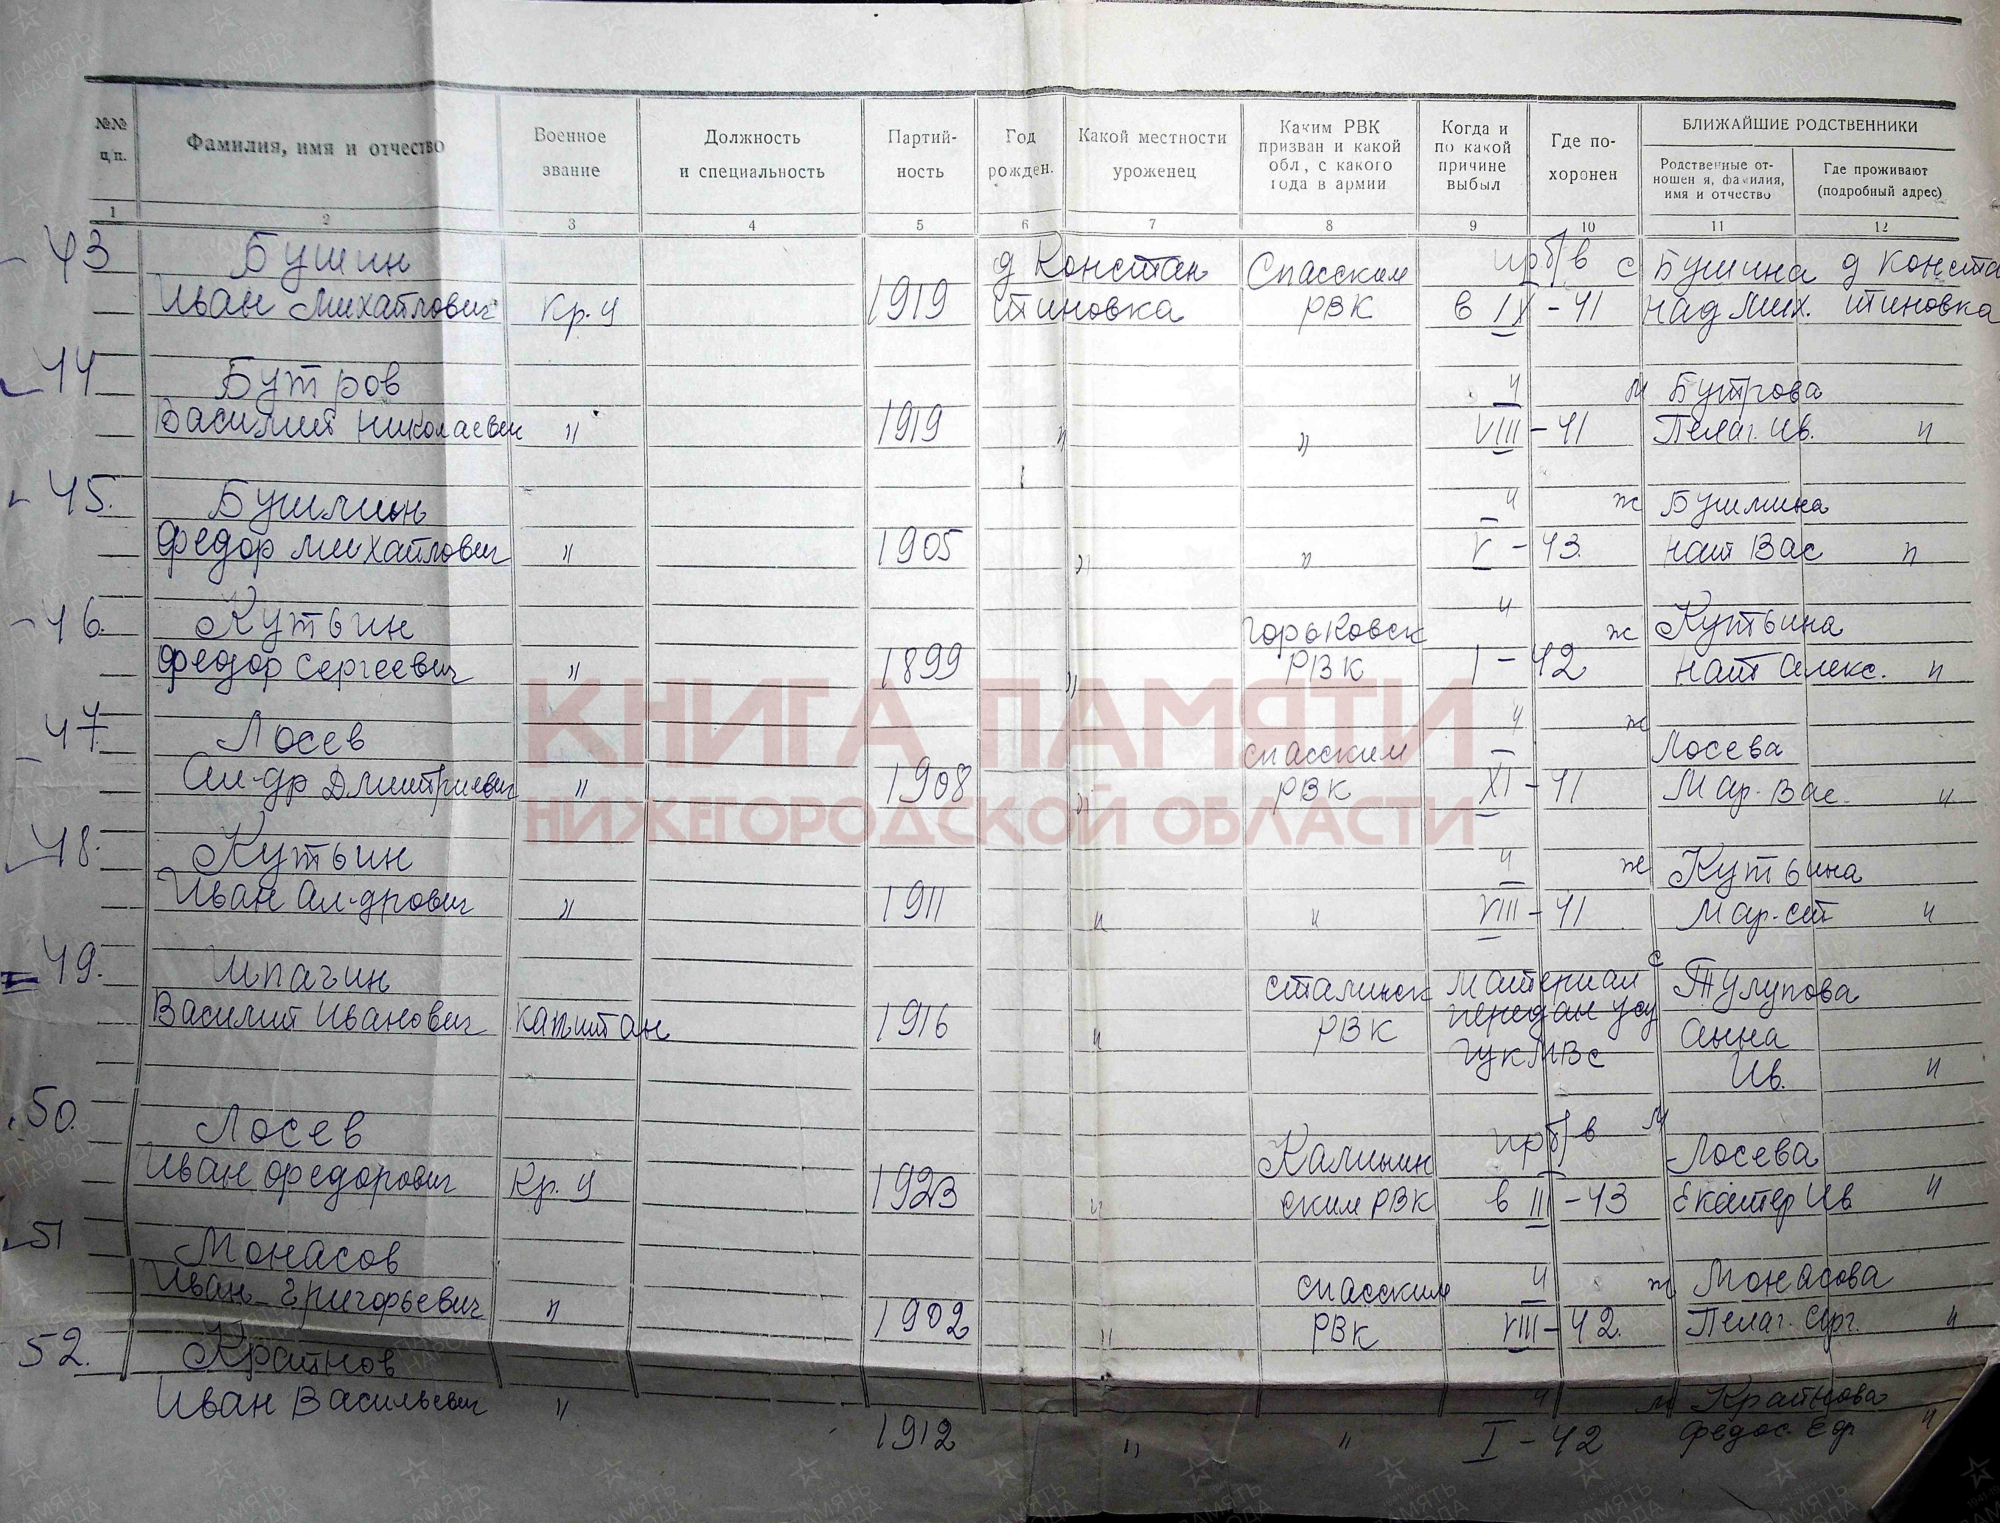 №№ ц/п.
Фамилия, имя и отчество
Военное звание
Должность и специальность
Партий-ность
Год рожден.
Какой местности уроженец
Каким РВК призван и какой обл., с какого года в армии
Когда и по какой причине выбыл
Где по-хоронен
БЛИЖАЙШИЕ РОДСТВЕННИКИ
Родственные от-ношен я, фамилия, имя и отчество
Где проживают (подробный адрес)
1 2 3 4 5 6 7 8 9 10 11 12
43 Бушин д Констан Спасским пр б/в с Бушина д Конста
Иван Михайлович Кр. 1919 тиновка РВК в IX-41 Над Мих. тиновка
44 Бутров " м Бутрова
Василий Николаевич " 1919 " " VIII-41 Пелаг. Ив. "
45. Бушлин " ж Бушлина
Федор Михайлович " 1905 " " V-43. Нат Вас "
46. Кутьин Горьковск " ж Кутьина
Федор Сергеевич " 1899 " РВК I-42 Нат Алекс. "
47. Лосев спасским " ж Лосева
Ал-др Дмитриевич " 1908 " РВК XI-41 Мар. Вас. "
48. Кутьин " ж Кутьина
Иван Ал-дрович " 1911 " " VIII-41 "
49. Шпагин сталинск Материал с Тулупова
Василий Иванович капитан 1916 " РВК передан Анна
ГУК МВс Ив. "
50. Лосев Калинин пр б/в м Лосева
Иван Федорович Кр. 1923 " ским РВК в III-43 Екатер Ив "
51 Монасов спасским " ж Монасова
Иван Григорьевич " 1902 " РВК VIII-42. Пелаг. "
52. Крайнов " м Крайнова
Иван Васильевич " 1912 " " I-42 Федос. "
КНИГА ПАМЯТИ
НИЖЕГОРОДСКОЙ ОБЛАСТИ
ПАМЯТЬ НАРОДА